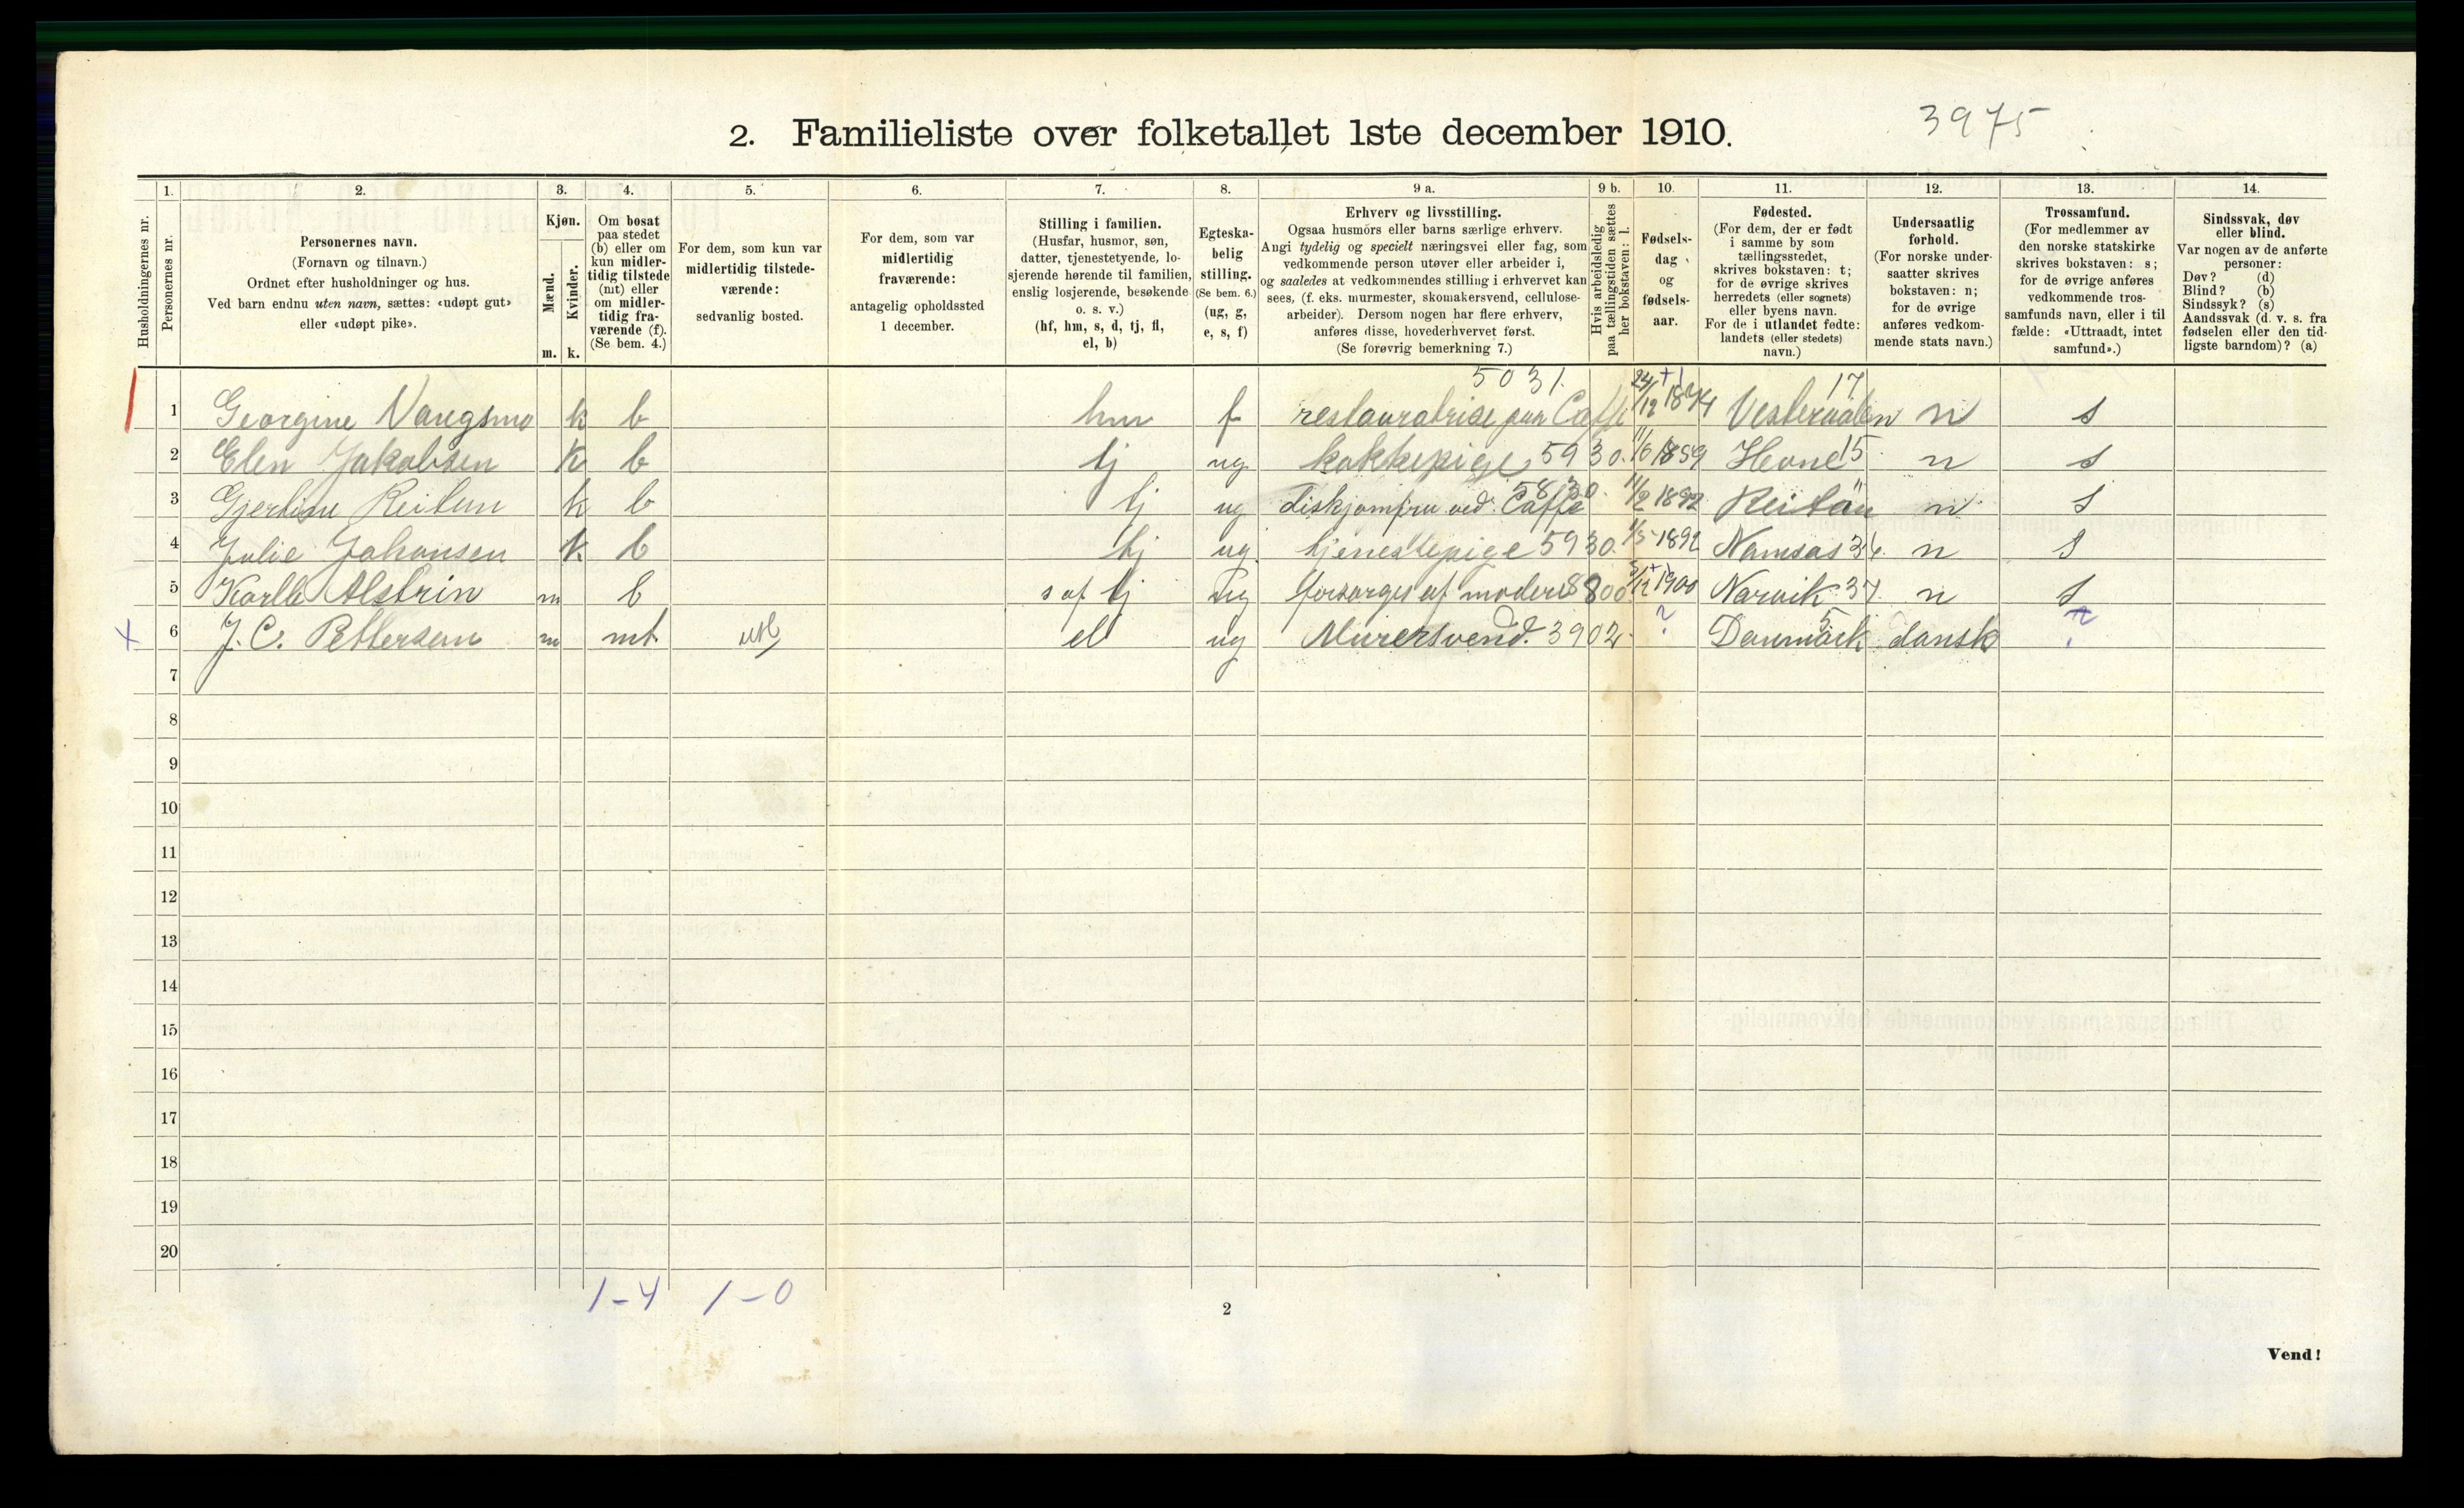 2. Familieliste over folketallet 1ste december 1910.
3975
Husholdningernes nr.
1.
Personernes nr.
2.
Personernes navn.
(Fornavn og tilnavn.)
Ordnet efter husholdninger og hus.
Ved barn endnu uten navn, sættes: «udøpt gut»
eller «udøpt pike».
3.
Kjøn.
Mænd.
Kvinder.
m. k.
4.
Om bosat
paa stedet
(b) eller om
kun midler-
tidig tilstede
(mt) eller
om midler-
tidig fra-
værende (f).
(Se bem. 4.)
5.
For dem, som kun var
midlertidig tilstede-
værende:
sedvanlig bosted.
6.
For dem, som var
midlertidig
fraværende:
antagelig opholdssted
1 december.
7.
Stilling i familien.
(Husfar, husmor, søn,
datter, tjenestetyende, lo-
sjerende hørende til familien,
enslig losjerende, besøkende
o. s. v.)
(hf, hm, s, d, tj, fl,
el, b)
8.
Egteska-
belig
stilling.
(Se bem. 6.)
(ug, g,
e, s, f)
9 a.
Erhverv og livsstilling.
Ogsaa husmors eller barns særlige erhverv.
Angi tydelig og specielt næringsvei eller fag, som
vedkommende person utøver eller arbeider i,
og saaledes at vedkommendes stilling i erhvervet kan
sees, (f. eks. murmester, skomakersvend, cellulose-
arbeider). Dersom nogen har flere erhverv,
anføres disse, hovederhvervet først.
(Se forøvrig bemerkning 7.)
9 b.
Hvis arbeidsledig
paa tællingstiden sættes
her bokstaven: l.
10.
Fødsels-
dag
og
fødsels-
aar.
11.
Fødested.
(For dem, der er født
i samme by som
tællingsstedet,
skrives bokstaven: t;
for de øvrige skrives
herredets (eller sognets)
eller byens navn.
For de i utlandet fødte:
landets (eller stedets)
navn.)
12.
Undersaatlig
forhold.
(For norske under-
saatter skrives
bokstaven: n;
for de øvrige
anføres vedkom-
mende stats navn.)
13.
Trossamfund.
(For medlemmer av
den norske statskirke
skrives bokstaven: s;
for de øvrige anføres
vedkommende tros-
samfunds navn, eller i til
fælde: «Uttraadt, intet
samfund».)
14.
Sindssvak, døv
eller blind.
Var nogen av de anførte
personer:
Døv? (d)
Blind? (b)
Sindssyk? (s)
Aandssvak (d. v. s. fra
fødselen eller den tid-
ligste barndom)? (a)
5031. 17
1 Georgine Vangsmo k b hm f restauratrise paa Caffe 24/12 Vesteraalen n s
2 Elen Jakobsen k b tj ug kokkepige 5930. 11/6 1889 Hevne 15 n s
3 Gjertine Reitan k b tj ug diskjomfru ved Caffe 5830. 11/2 1892 Reitan " n s
4 Julie Johansen k b tj ug tjenestepige 5930. 1/5 1892 Namsos 36. n s
5 Karlk Alstrin m b s af tj ug forsørges af moderen 8800 5/12 1900 Narvik 37. n s
x 6 J. C. Pettersen m mt utl el ug Murersvend. 3902. ? Danmark 5 dansk ?
7
8
9
10
11
12
13
14
15
16
17
18
19
20
1–4 1–0
2
Vend!